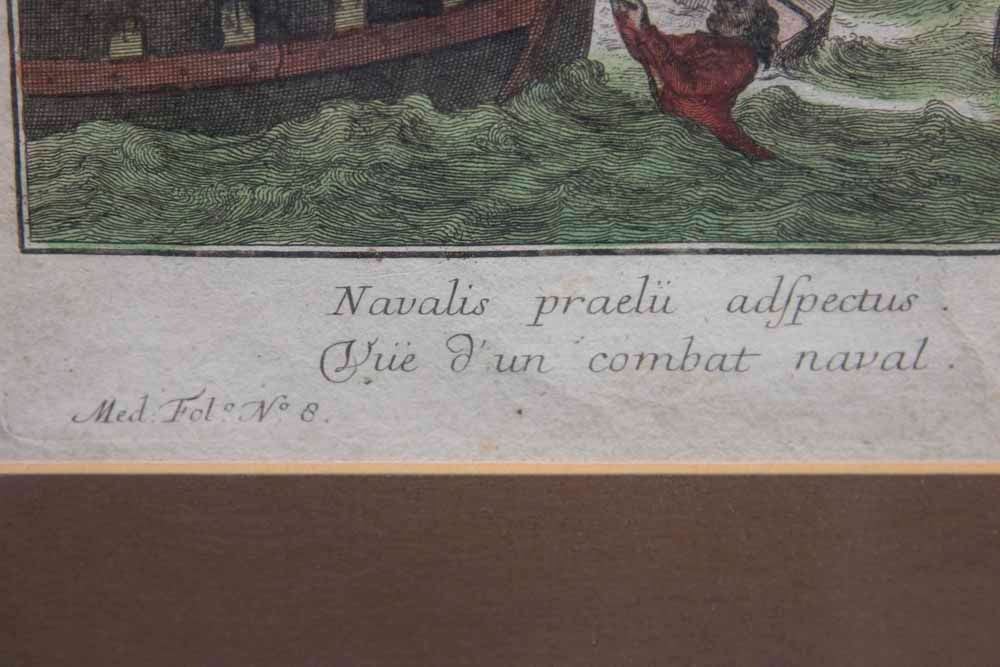 Navalis praelii adſpectus.
Vüe d'un combat naval.
Med. Fol.º Nº 8.